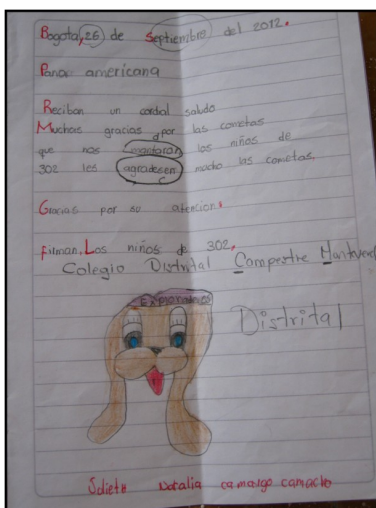 Bogota, 26 de Septiembre del 2012.
Pana americana
Reciban un cordial saludo
Muchas gracias por las cometas
que nos los niños de
302 les agradesen mucho las cometas.
Gracias por su atencion.
Firman, Los niños de 302.
Colegio Distrital Campestre
Distrital
Natalia camargo camacho